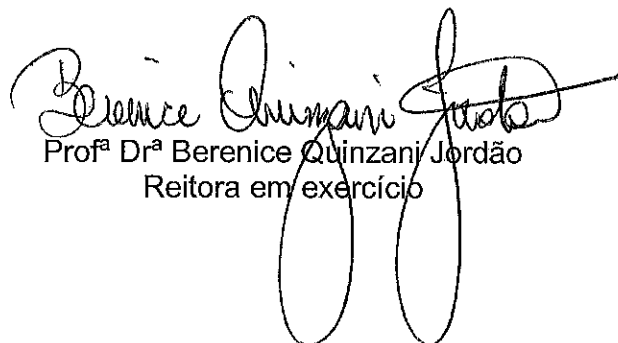 Berenice Quinzani Jordão
Profª Drª Berenice Quinzani Jordão
Reitora em exercício